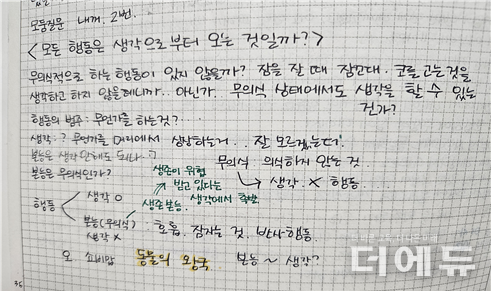 모둠질문 내꺼. 2번.
<모든 행동은 생각으로부터 오는 것일까?>
무의식적으로 하는 행동이 있지 않을까? 잠을 잘 때 잠꼬대. 코를 고는 것을
생각하고 하지 않을테니까.. 아닌가. 무의식 상태에서도 생각을 할 수 있는
건가?
행동의 범주: 무언가를 하는것?...
생각: ? 무언가를 머리에서 상상하는거.. 잘 모르겠는데!
본능은 생각 안해도 되나..?
본능은 무의식인가?
무의식: 의식하지 않는 것.
→ 생각. X 행동....
생존이 위협
받고 있다는
생각에서 출발
생존 본능.
행동
생각 O
본능(무의식)
생각 X
: 호흡. 잠자는 것. 반사행동.
오
동물의 왕국..
본능 ~ 생각?
36
더에듀